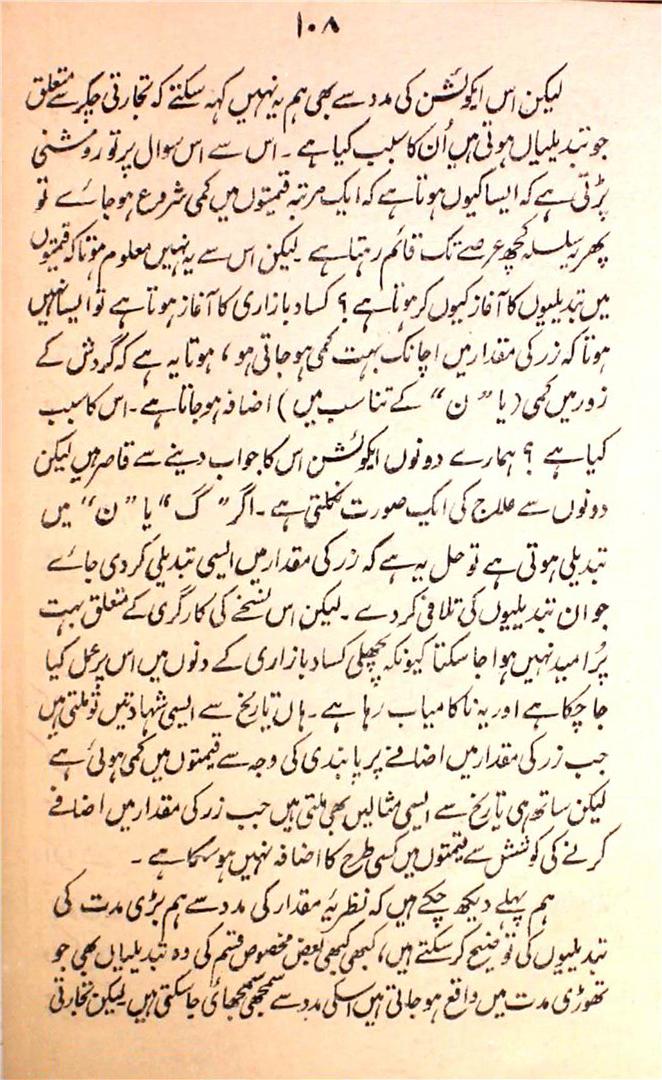 ۱۰۸
لیکن اس ایکوئشن کی مدد سے بھی ہم یہ نہیں کہہ سکتے کہ تجارتی چکر سے متعلق
جو تبدیلیاں ہوتی ہیں اُن کا سبب کیا ہے ۔ اس سے اس سوال پر تو روشنی
پڑتی ہے کہ ایسا کیوں ہوتا ہے کہ ایک مرتبہ قیمتوں میں کمی شروع ہو جائے تو
پھر یہ سلسلہ کچھ عرصے تک قائم رہتا ہے ۔ لیکن اس سے یہ نہیں معلوم ہوتا کہ قیمتوں
میں تبدیلیوں کا آغاز کیوں کر ہوتا ہے ؟ کساد بازاری کا آغاز ہوتا ہے تو ایسا نہیں
ہوتا کہ زر کی مقدار میں اچانک بہت کمی ہو جاتی ہو ، ہوتا یہ ہے کہ گردش کے
زور میں کمی (یا ”ن“ کے تناسب میں) اضافہ ہو جاتا ہے ۔ اس کا سبب
کیا ہے ؟ ہمارے دونوں ایکوئشن اس کا جواب دینے سے قاصر ہیں لیکن
دونوں سے علاج کی ایک صورت نکلتی ہے ۔ اگر ”گ“ یا ”ن“ میں
تبدیلی ہوتی ہے تو حل یہ ہے کہ زر کی مقدار میں ایسی تبدیلی کر دی جائے
جو ان تبدیلیوں کی تلافی کر دے ۔ لیکن اس نسخے کی کارگری کے متعلق بہت
پُر امید نہیں ہوا جا سکتا کیونکہ پچھلی کساد بازاری کے دنوں میں اس پر عمل کیا
جا چکا ہے اور یہ ناکامیاب رہا ہے ۔ ہاں تاریخ سے ایسی شہادتیں تو ملتی ہیں
جب زر کی مقدار میں اضافے پر پابندی کی وجہ سے قیمتوں میں کمی ہوئی ہے
لیکن ساتھ ہی تاریخ سے ایسی مثالیں بھی ملتی ہیں جب زر کی مقدار میں اضافے
کرنے کی کوشش سے قیمتوں میں کسی طرح کا اضافہ نہیں ہو سکا ہے ۔
ہم پہلے دیکھ چکے ہیں کہ نظریۂ مقدار کی مدد سے ہم بڑی مدت کی
تبدیلیوں کی توضیح کر سکتے ہیں، کبھی کبھی بعض مخصوص قسم کی وہ تبدیلیاں بھی جو
تھوڑی مدت میں واقع ہو جاتی ہیں اسکی مدد سے سمجھی سمجھائی جا سکتی ہیں لیکن تجارتی